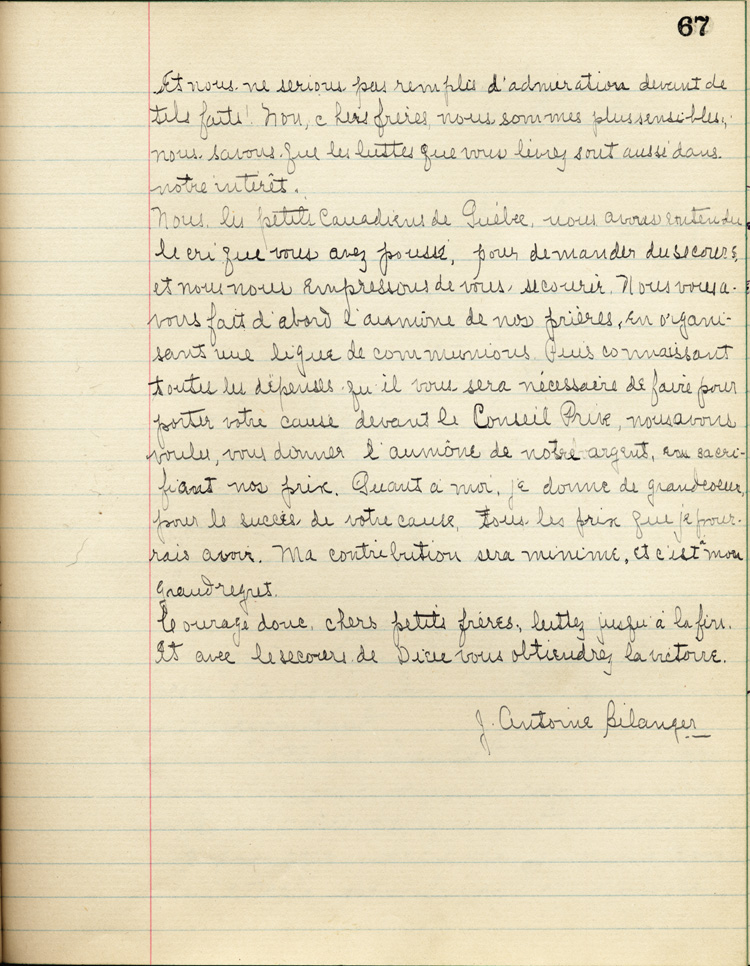 67
Et nous ne serions pas remplis d'admiration devant de
tels faits! Non, chers frères, nous sommes plus sensibles,
nous savons que les luttes que vous livrez sont aussi dans
notre intérêt.
Nous, les petits Canadiens de Québec, nous avons entendu
le cri que vous avez poussé, pour demander du secours,
et nous nous empressons de vous secourir. Nous vous a-
vons fait d'abord l'aumône de nos prières, en organi-
sant une ligue de communions. Puis connaissant
toutes les dépenses qu'il vous sera nécessaire de faire pour
porter votre cause devant le Conseil Privé, nous avons
voulu, vous donner l'aumône de notre argent, en sacri-
fiant nos prix. Quant à moi, je donne de grand coeur,
pour le succès de votre cause, tous les prix que je pour-
rais avoir. Ma contribution sera minime, et c'est mon
grand regret.
Courage donc, chers petits frères, luttez jusqu'à la fin.
Et avec le secours de Dieu vous obtiendrez la victoire.
J. Antoine Bélanger